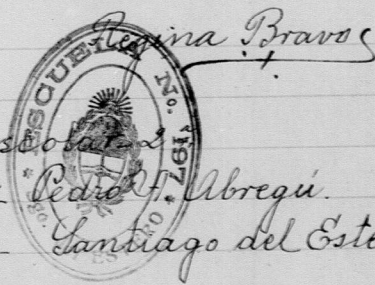 Regina Bravo
ESCUELA No. 197
Pedro F. Abregú.
Santiago del Este